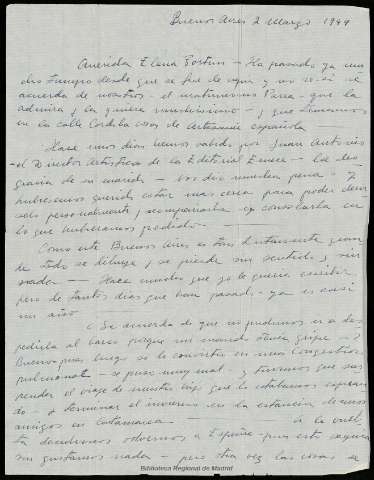 Buenos Aires 2 Marzo 1949
Querida Elena Fortun — Ha pasado ya un
tiempo desde que se fue de aqui y no se si se
acuerda de nosotros — el matrimonio Parra — que la
admira y la quiere muchisimo — y que tenemos
en la calle Cordoba cosas de Artesania española
Hace unos dias hemos sabido por Juan Antonio
— el Director Artistico de la Editorial Emece — la des
gracia de su marido — nos dio mucha pena — y
hubieramos querido estar mas cerca para poder
personalmente y acompañarla y consolarla en
lo que hubieramos podido —
Como este Buenos Aires es tan grande
todo se diluye y se pierde sin sentido y sin
nada — Hace mucho que yo le queria escribir
pero de tantos dias que han pasado — ya es casi
un año
¿ Se acuerda de que no pudimos ir a des
pedirla al barco porque mi marido tenia gripe — ?
Bueno, pues luego se le convirtio en una congestion
pulmonar — se puso muy mal — y tuvimos que sus
pender el viaje de nuestro hijo que lo estabamos esperan
do — y terminar el invierno en la estancia de unos
amigos en Catamarca — a la vuel
ta decidimos volvernos a España — pues esto seguia
sin gustarnos nada — pero otra vez las cosas se
Biblioteca Regional de Madrid